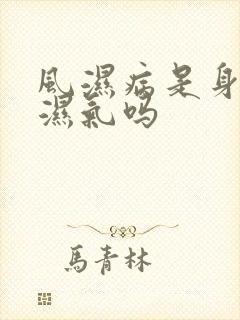 風濕病是身
濕氣吗
馬青林